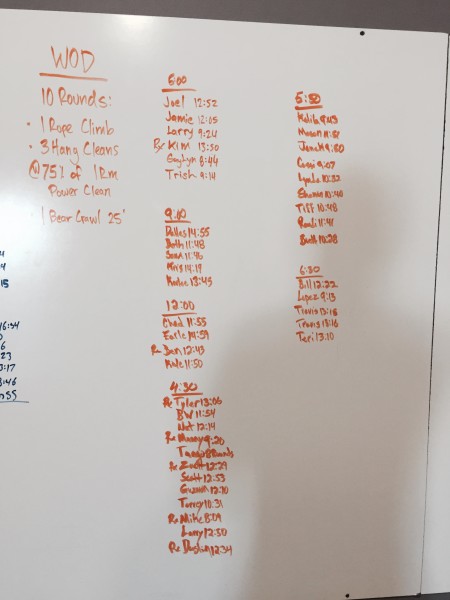 WOD
10 Rounds:
• 1 Rope Climb
• 3 Hang Cleans
@ 75% of 1Rm
Power Clean
1 Bear Crawl 25'
6:00
Joel 12:52
Jamie 12:05
Larry 9:24
Rx Kim 13:50
8:44
Trish 9:14
9:00
Dallas 14:55
Beth 11:48
Sean 11:46
14:19
13:45
12:00
Chad 11:55
Earle 14:59
Rx Dan 12:43
Kyle 11:50
4:30
Rx Tyler 13:06
BW 11:54
12:14
Rx Manny 9:20
8 Rounds
Rx Zach 12:29
Scott 12:53
12:10
Torrey 10:31
Rx Mike 8:09
Larry 12:50
Rx Dustin 12:34
5:30
Kalib 9:43
Mason
Janet
9:07
Lynda 10:32
Shannon 10:40
Tiff 10:48
11:41
Beth 10:28
6:30
Bill 12:22
Lopez 9:13
Travis 13:16
Travis 13:16
Teri 13:10
4
4
15
16:54
6
23
3:17
3:46